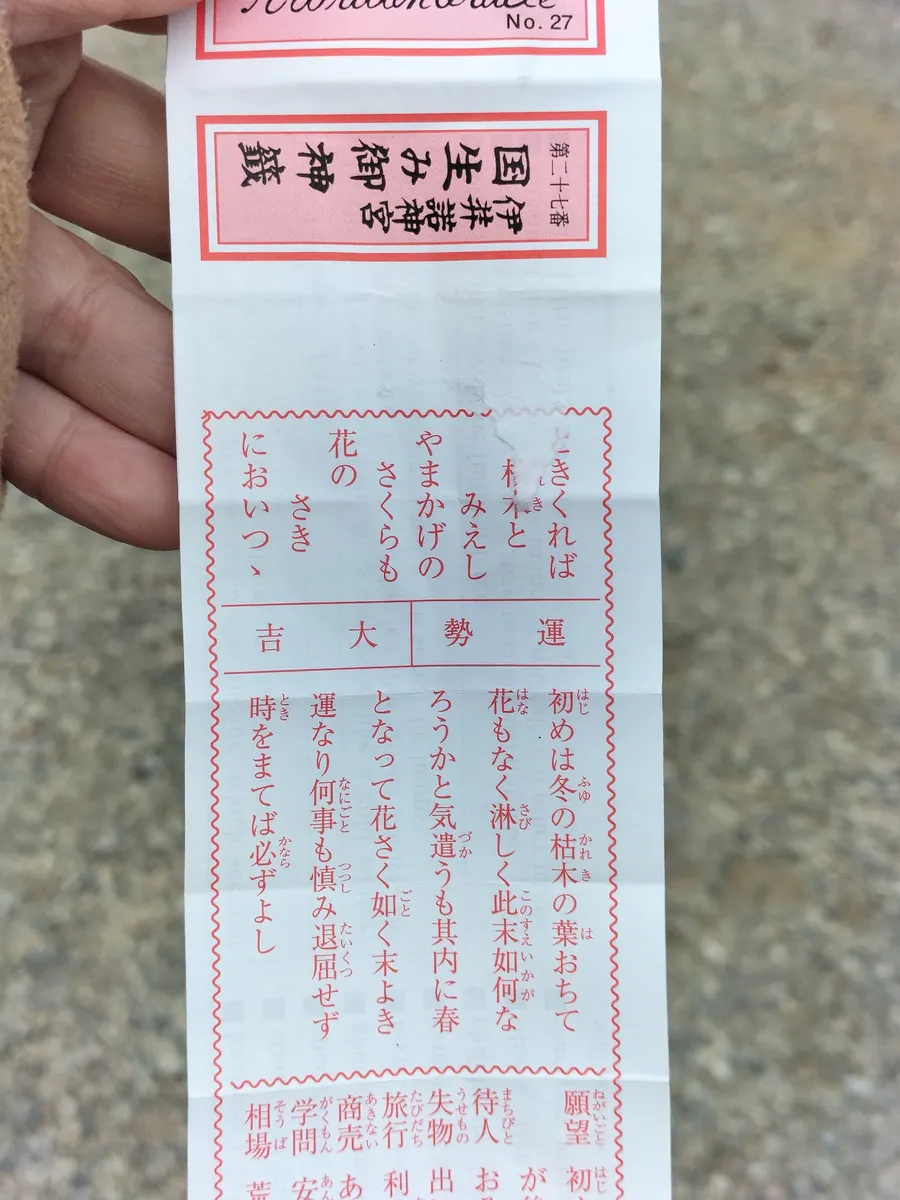 No. 27
第二十七番
伊弉諾神宮
国生み御神籤
ときくれば
枯木と
みえし
やまかげの
さくらも
花の
さき
においつゝ
運勢
大吉
初めは冬の枯木の葉おちて
花もなく淋しく此末如何な
ろうかと気遣うも其内に春
となって花さく如く末よき
運なり何事も慎み退屈せず
時をまてば必ずよし
願望 初
が
待人 お
失物 出
旅行 利
商売 あ
学問 安
相場 荒